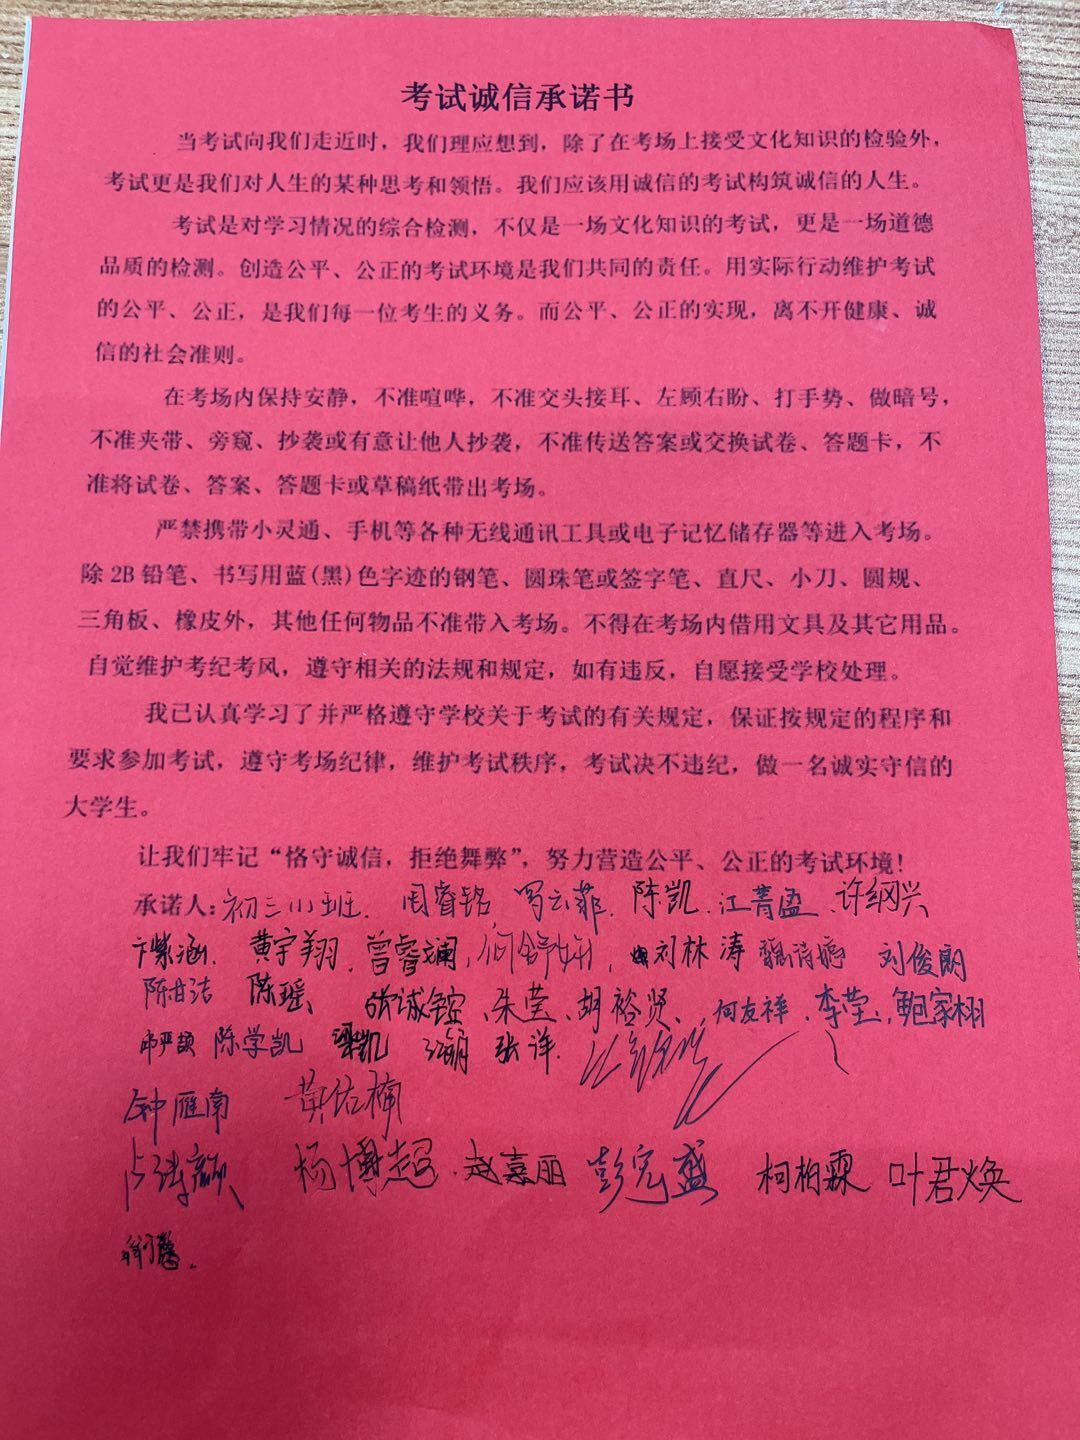 考试诚信承诺书
当考试向我们走近时，我们理应想到，除了在考场上接受文化知识的检验外，
考试更是我们对人生的某种思考和领悟。我们应该用诚信的考试构筑诚信的人生。
考试是对学习情况的综合检测，不仅是一场文化知识的考试，更是一场道德
品质的检测。创造公平、公正的考试环境是我们共同的责任。用实际行动维护考试
的公平、公正，是我们每一位考生的义务。而公平、公正的实现，离不开健康、诚
信的社会准则。
在考场内保持安静，不准喧哗，不准交头接耳、左顾右盼、打手势、做暗号，
不准夹带、旁窥、抄袭或有意让他人抄袭，不准传送答案或交换试卷、答题卡，不
准将试卷、答案、答题卡或草稿纸带出考场。
严禁携带小灵通、手机等各种无线通讯工具或电子记忆储存器等进入考场。
除2B铅笔、书写用蓝(黑)色字迹的钢笔、圆珠笔或签字笔、直尺、小刀、圆规、
三角板、橡皮外，其他任何物品不准带入考场。不得在考场内借用文具及其它用品。
自觉维护考纪考风，遵守相关的法规和规定，如有违反，自愿接受学校处理。
我已认真学习了并严格遵守学校关于考试的有关规定，保证按规定的程序和
要求参加考试，遵守考场纪律，维护考试秩序，考试决不违纪，做一名诚实守信的
大学生。
让我们牢记“恪守诚信，拒绝舞弊”，努力营造公平、公正的考试环境！
承诺人：初三(1)班. 周睿铭 罗云菲. 陈凯. 江菁盈. 许纲兴
卞紫涵. 黄宇翔. 曾睿斓, 刘林涛 刘俊朗
陈甘洁 陈瑶、朱莹、胡裕贤、何友祥. 李莹, 鲍家栩
陈学凯 梁凯 张洋.
钟雁南 黄佑楠
杨博超. 赵嘉丽 彭宏盛 柯柏霖 叶君焕